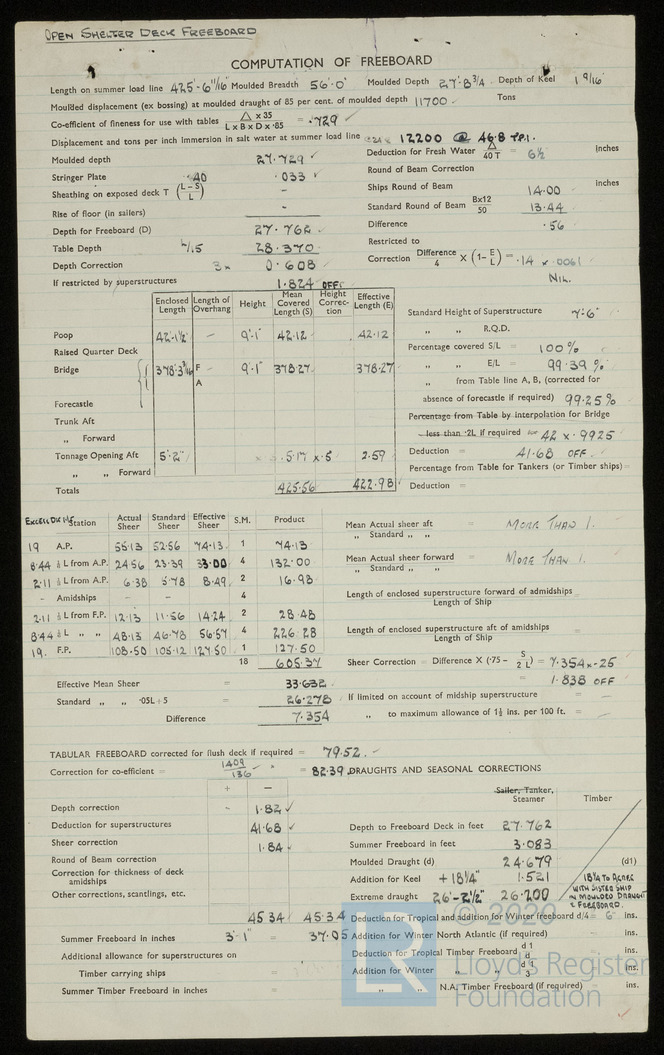 OPEN SHELTER DECK FREEBOARD
COMPUTATION OF FREEBOARD
Length on summer load line 425'-6 11/16" Moulded Breadth 56'-0" Moulded Depth 27'-8 3/4 Depth of Keel 1 9/16"
Moulded displacement (ex bossing) at moulded draught of 85 per cent. of moulded depth 11700 Tons
Co-efficient of fineness for use with tables △ x 35 / L x B x D x ·85 = ·729
Displacement and tons per inch immersion in salt water at summer load line 12200 @ 46.8 T.P.I.
Moulded depth 27.729
Deduction for Fresh Water △ / 40 T = 6½ inches
Stringer Plate .40 .033
Round of Beam Correction
Sheathing on exposed deck T (L-S / L) -
Ships Round of Beam 14.00 inches
Rise of floor (in sailers) -
Standard Round of Beam Bx12 / 50 13.44
Depth for Freeboard (D) 27.762
Difference .56
Table Depth L/15 28.370
Restricted to
Depth Correction 3x 0.608
Correction Difference / 4 x (1- E / L) = .14 x .0061
If restricted by superstructures 1.824 OFF
NIL.
Enclosed Length Length of Overhang Height Mean Covered Length (S) Height Correction Effective Length (E)
Standard Height of Superstructure 7'-6"
Poop 42'-1½" - 9'-1" 42.12 42.12
" " R.Q.D.
Raised Quarter Deck
Percentage covered S/L = 100%
Bridge 378'-3 3/16 F - 9'-1" 378.27 378.27
" " E/L = 99.39 %
A
" from Table line A, B, (corrected for
Forecastle
absence of forecastle if required) 99.25%
Trunk Aft
Percentage from Table by interpolation for Bridge
" Forward
less than ·2L if required = 42 x .9925
Tonnage Opening Aft 5'-2" 5.17 x.5 2.59
Deduction = 41.68 OFF.
" " Forward
Percentage from Table for Tankers (or Timber ships) =
Totals 425.56 422.98
Deduction =
Station Actual Sheer Standard Sheer Effective Sheer S.M. Product
Mean Actual sheer aft / " Standard " " = MORE THAN 1.
19 A.P. 55.13 52.56 74.13 1 74.13
8.44 ⅙ L from A.P. 24.56 23.39 33.00 4 132.00
Mean Actual sheer forward / " Standard " " = MORE THAN 1.
2.11 ⅓ L from A.P. 6.38 5.78 8.49 2 16.98
- Amidships - - 4
Length of enclosed superstructure forward of admidships / Length of Ship =
2.11 ⅓ L from F.P. 12.13 11.56 14.24 2 28.48
8.44 ⅙ L " " 48.13 46.78 56.57 4 226.28
Length of enclosed superstructure aft of amidships / Length of Ship =
19. F.P. 108.50 105.12 127.50 1 127.50
18 605.37
Sheer Correction = Difference X (·75 - S / 2 L) = 7.354 x .25
= 1.838 OFF
Effective Mean Sheer = 33.632
Standard " " ·05L + 5 = 26.278
If limited on account of midship superstructure =
Difference 7.354
" to maximum allowance of 1½ ins. per 100 ft. =
TABULAR FREEBOARD corrected for flush deck if required = 79.52.
Correction for co-efficient = 1409 / 136 = 82.39
DRAUGHTS AND SEASONAL CORRECTIONS
+ -
Sailer, Tanker, Steamer Timber
Depth correction - 1.82
Deduction for superstructures 41.68
Depth to Freeboard Deck in feet 27.762
Sheer correction 1.84
Summer Freeboard in feet 3.083
Round of Beam correction
Moulded Draught (d) 24.679 (d1)
Correction for thickness of deck amidships
Addition for Keel + 18¼" 1.521
18¼ TO AGREE WITH SISTER SHIP IN MOULDED DRAUGHT & FREEBOARD.
Other corrections, scantlings, etc.
Extreme draught 26'-2½" 26.200
45.34 45.34
Deduction for Tropical and addition for Winter freeboard d/4 = 6" ins.
Summer Freeboard in inches 3'-1" = 37.05
Addition for Winter North Atlantic (if required) - ins.
Additional allowance for superstructures on
Deduction for Tropical Timber Freeboard d 1 / 4 ins.
Timber carrying ships =
Addition for Winter " " d 1 / 3 ins.
Summer Timber Freeboard in inches =
" " N.A. Timber Freeboard (if required) = ins.
© 2020
LR
Lloyd's Register
Foundation